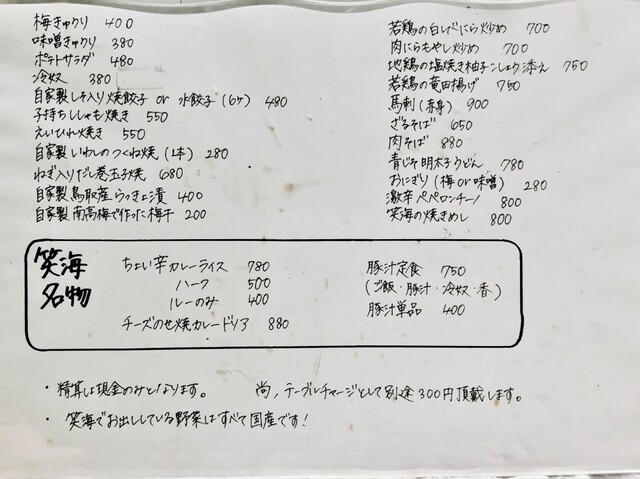 梅きゅうり 400
味噌きゅうり 380
ポテトサラダ 480
冷奴 380
自家製しそ入り焼餃子 or 水餃子(6ヶ) 480
子持ちししゃも焼き 550
えいひれ焼き 550
自家製いわしのつくね焼(1本) 280
ねぎ入りだし巻玉子焼 680
自家製鳥取産らっきょ漬 400
自家製南高梅で作った梅干 200
若鶏の白しだにら炒め 700
肉にらもやし炒め 700
地鶏の塩焼き柚子こしょう添え 750
若鶏の竜田揚げ 750
馬刺(赤身) 900
ざるそば 650
肉そば 880
青じそ明太子うどん 780
おにぎり(梅or味噌) 280
激辛ペペロンチーノ 800
笑海の焼きめし 800
笑海
名物
ちょい辛カレーライス 780
ハーフ 500
ルーのみ 400
チーズのせ焼カレードリア 880
豚汁定食 750
(ご飯・豚汁・冷奴・香)
豚汁単品 400
・精算は現金のみとなります。 尚、テーブルチャージとして別途300円頂戴します。
・笑海でお出ししている野菜はすべて国産です!